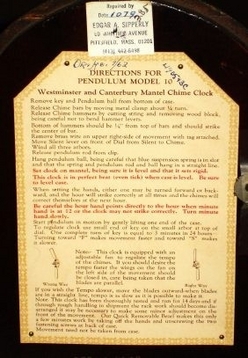 Repaired by
Date 10/79
EDGAR A. SIPPERLY
AVENUE
PITTSFIELD, MASS. 01201
(413)
DIRECTIONS FOR
PENDULUM MODEL 10
Westminster and Canterbury Mantel Chime Clock
Remove key and Pendulum ball from bottom of case.
Release Chime bars by moving metal clamp about ¼ turn.
Release Chime hammers by cutting string and removing wood block, being careful not to bend hammer levers.
Bottom of hammers should be ⅛" from top of bars and should strike the center of bar.
Remove brass wire on upper right-side of movement with tag attached.
Move Silent lever on front of Dial from Silent to Chime.
Wind all the arbors.
Release pendulum rod from clip.
Hang pendulum ball, being careful that blue suspension spring is in slot and that the spring and pendulum rod and ball hang in a straight line.
Set clock on mantel, being sure it is level and that it sets rigid.
This clock is in perfect beat (even tick) when case is level. Be sure to level case.
When setting the hands, either one may be turned forward or backward, and the hour will strike correctly at all times and the chimes will correct themselves to the next hour.
Be careful the hour hand points directly to the hour when minute hand is at 12 or the clock may not strike correctly. Turn minute hand slowly.
Start pendulum in motion by gently lifting one end of the case.
To regulate clock use small end of key on the small arbor at top of dial. One complete turn of key is equal to 3 minutes in 24 hours. Turning toward "F" makes movement faster and toward "S" makes it slower.
Note:—This clock is equipped with an adjustable fan to regulate the tempo of the chimes. If you should desire the tempo faster the wings on the fan on the left side of the movement should be closed in, care being taken that they
Wrong Way
Right Way
If you wish the Tempo slower, move the blades outward—when blades are in a straight line, tempo is as slow as it is possible to make it.
Note: This clock has been thoroughly tested and run for 14 days—and if through rough handling in shipment the rack work should become disarranged it may be necessary to make some minor adjustment on the front of the movement. (Our Quick Removable Bezel makes this only a few minutes work) by taking off the hands and unscrewing the two fastening screws at back of case.
Movement need not be taken from case.